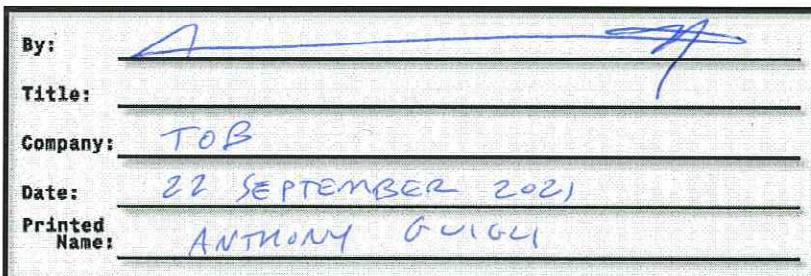 By:
Title:
Company: TOB
Date: 22 SEPTEMBER 2021
Printed
Name: ANTHONY GUIGLI